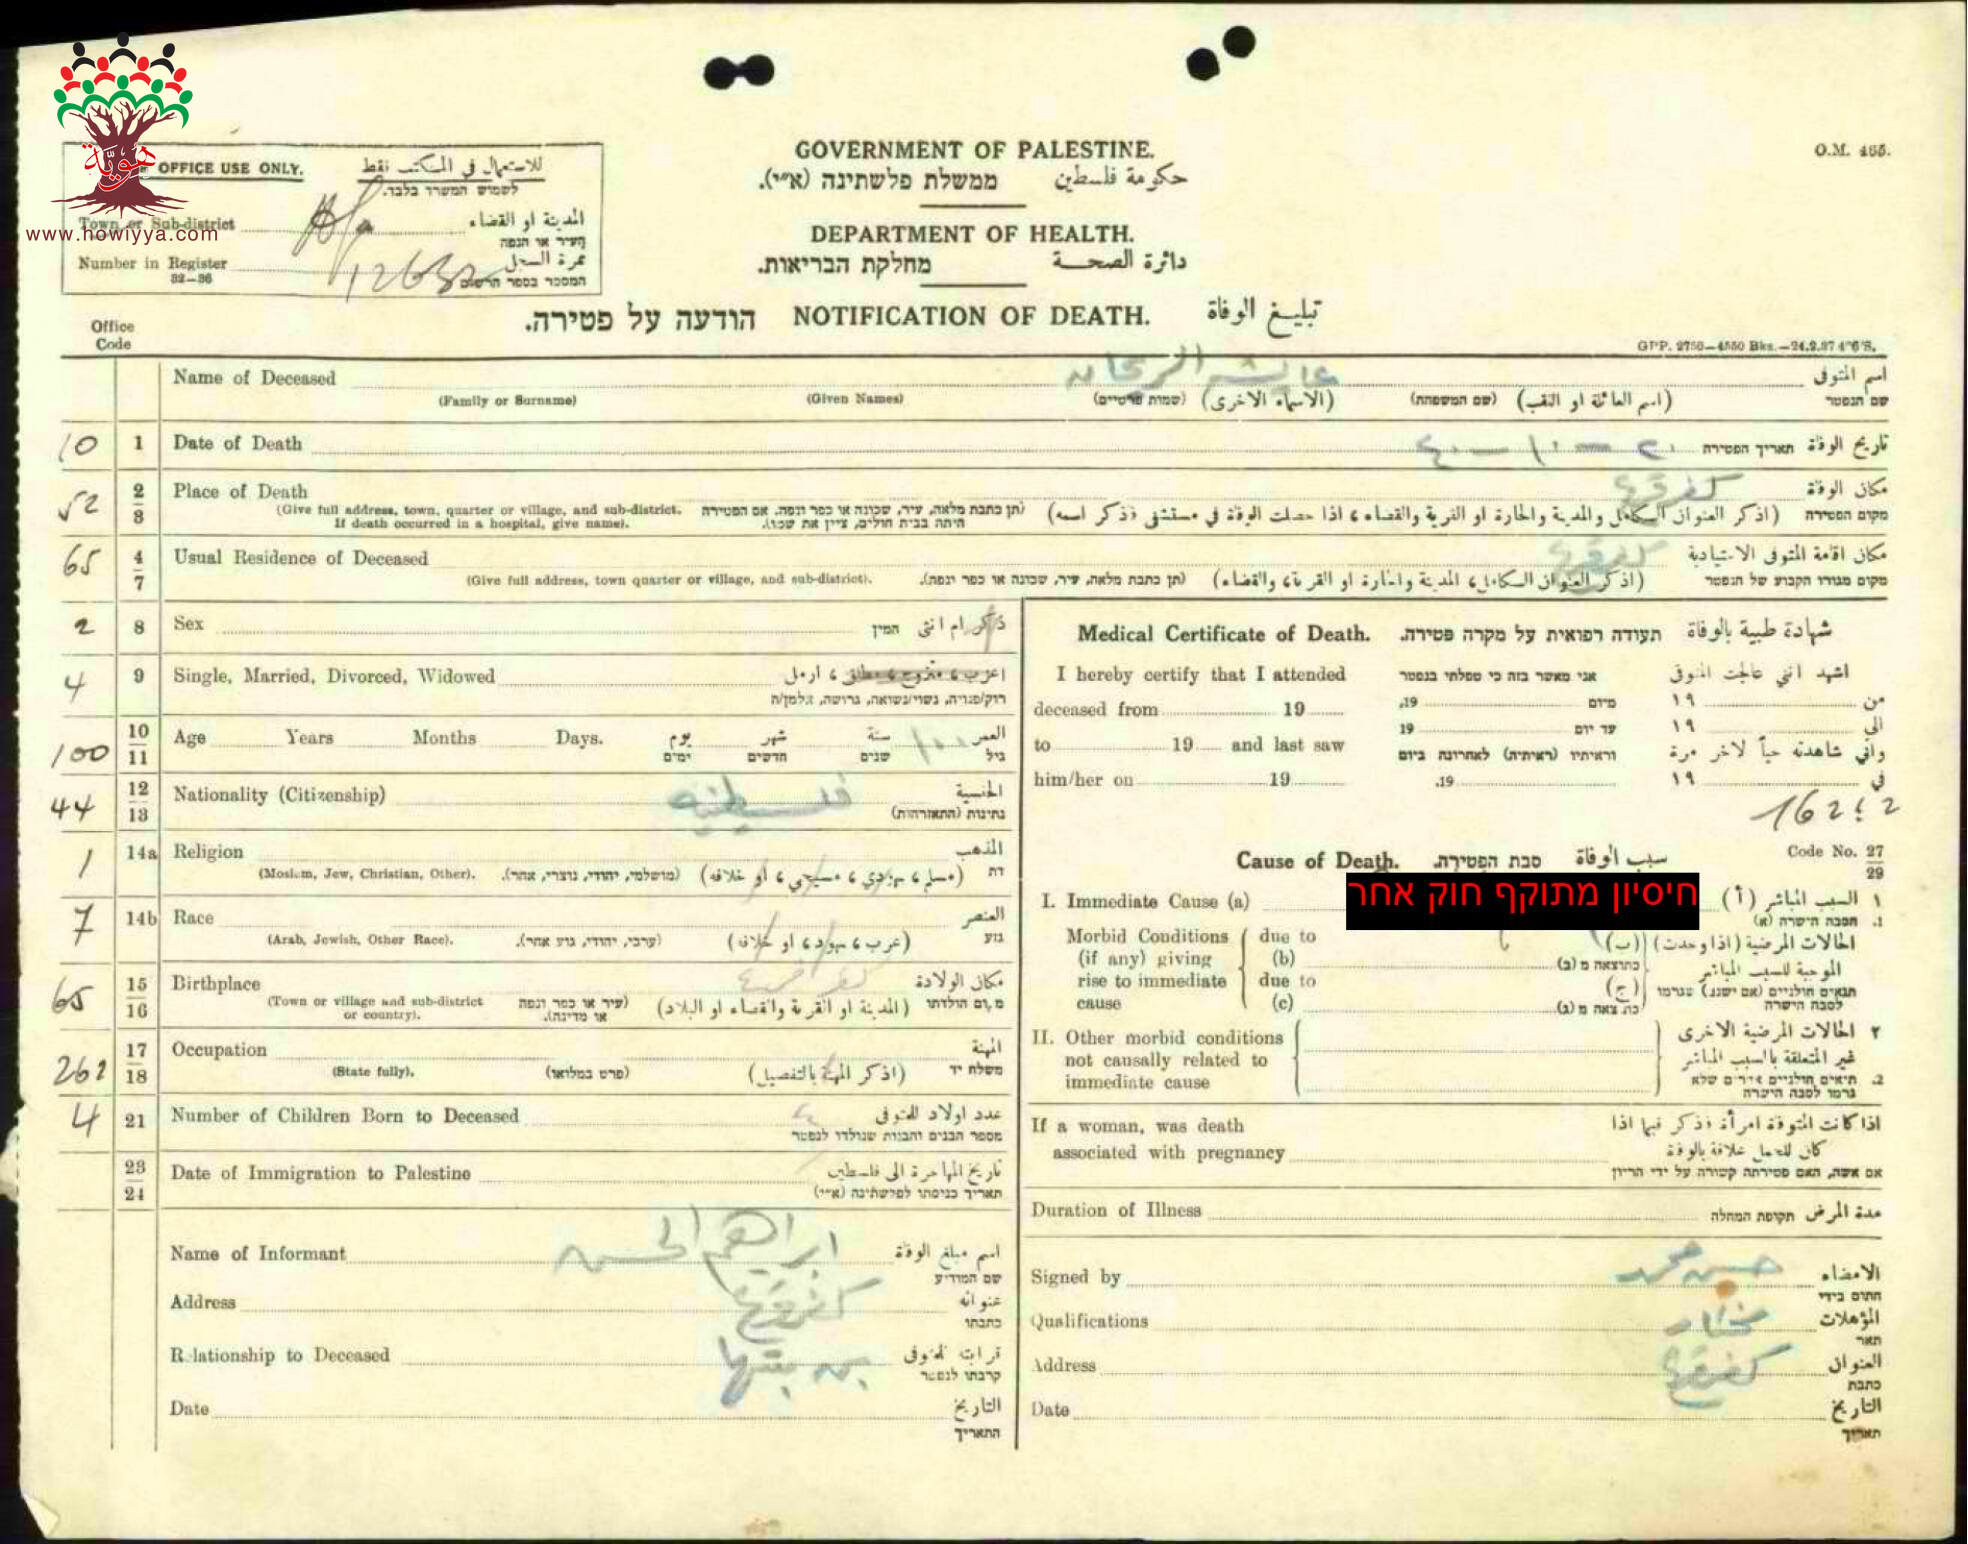 هوية
www.howiyya.com
OFFICE USE ONLY. للاستعمال في المكتب فقط
לשמוש המשרד בלבד.
Town or Sub-district المدينة او القضاء
העיר או הנפה
Number in Register نمرة السجل
32—36 המספר בספר הרשום
GOVERNMENT OF PALESTINE.
ממשלת פלשתינה (א״י). حكومة فلسطين
DEPARTMENT OF HEALTH.
מחלקת הבריאות. دائرة الصحة
O.M. 455.
הודעה על פטירה. NOTIFICATION OF DEATH. تبليغ الوفاة
Office
Code
GPP. 2750—4550 Bks.—24.2.37 4"6'S.
Name of Deceased عايشه الريحان اسم المتوفى
(Family or Surname) (Given Names) (שמות פרטיים) (الاسماء الاخرى) (שם המשפחה) (اسم العائلة او اللقب) שם הנפטר
10 1 Date of Death ٢٠ — ١٠ — ٤٠ תאריך הפטירה تاريخ الوفاة
52 2/3 Place of Death كفرقرع مكان الوفاة
(Give full address, town, quarter or village, and sub-district. If death occurred in a hospital, give name). (תן כתבת מלאה, עיר, שכונה או כפר ונפה. אם הפטירה היתה בבית חולים, ציין את שמו). (اذكر العنوان الكامل والمدينة والحارة او القرية والقضاء، اذا حصلت الوفاة في مستشفى فذكر اسمه) מקום הפטירה
65 4/7 Usual Residence of Deceased كفرقرع مكان اقامة المتوفى الاعتيادية
(Give full address, town quarter or village, and sub-district). (תן כתבת מלאה, עיר, שכונה או כפר ונפה). (اذكر العنوان الكامل، المدينة والحارة او القرية، والقضاء) מקום מגורו הקבוע של הנפטר
2 8 Sex המין ذكر ام انثى
4 9 Single, Married, Divorced, Widowed اعزب، متزوج، مطلق، ارمل
רוק/פנויה, נשוי/נשואה, גרושה, אלמן/ה
100 10/11 Age Years Months Days. يوم شهر سنة ١٠٠ العمر
ימים חדשים שנים גיל
44 12/13 Nationality (Citizenship) فلسطينيه الجنسية
נתינות (התאזרחות)
1 14a Religion المذهب
(Moslem, Jew, Christian, Other). (מושלמי, יהודי, נוצרי, אחר). (مسلم، يهودي، مسيحي، او خلافه) דת
7 14b Race العنصر
(Arab, Jewish, Other Race). (ערבי, יהודי, גזע אחר). (عرب، يهود، او خلافه) גזע
65 15/16 Birthplace كفرقرع مكان الولادة
(Town or village and sub-district or country). (עיר או כפר ונפה או מדינה). (المدينة او القرية والقضاء او البلاد) מקום הולדתו
262 17/18 Occupation المهنة
(State fully). (פרט במלואו) (اذكر المهنة بالتفصيل) משלח יד
4 21 Number of Children Born to Deceased ٤ عدد اولاد المتوفى
מספר הבנים והבנות שנולדו לנפטר
23/24 Date of Immigration to Palestine تاريخ المهاجرة الى فلسطين
תאריך כניסתו לפלשתינה (א״י)
Name of Informant ابراهيم الحسن اسم مبلغ الوفاة
שם המודיע
Address كفرقرع عنوانه
כתבתו
Relationship to Deceased بن بنتها قرابته للمتوفى
קרבתו לנפטר
Date التاريخ
התאריך
Medical Certificate of Death. תעודה רפואית על מקרה פטירה. شهادة طبية بالوفاة
I hereby certify that I attended אני מאשר בזה כי טפלתי בנפטר اشهد انني عالجت المتوفى
deceased from 19 מיום 19, من ١٩
to 19 and last saw עד יום 19 الى ١٩
him/her on 19 וראיתיו (ראיתיה) לאחרונה ביום 19. واني شاهدته حياً لآخر مرة في ١٩
Cause of Death. סבת הפטירה. سبب الوفاة Code No. 27/29
I. Immediate Cause (a) חיסיון מתוקף חוק אחר ١ السبب المباشر (أ)
1. הסבה הישרה (א)
Morbid Conditions due to الحالات المرضية (اذا وجدت) (ب)
(if any) giving (b) כתוצאה מ (ב) الموجبة للسبب المباشر
rise to immediate due to (ج) תנאים חולניים (אם ישנם) שגרמו
cause (c) כתוצאה מ (ג) לסבה הישרה
II. Other morbid conditions ٢ الحالات المرضية الاخرى
not causally related to غير المتعلقة بالسبب المباشر
immediate cause 2. תנאים חולניים אחרים שלא
גרמו לסבה הישרה
If a woman, was death اذا كانت المتوفاة امرأة فذكر فيما اذا
associated with pregnancy كان للحمل علاقة بالوفاة
אם אשה, האם פטירתה קשורה על ידי הריון
Duration of Illness תקופת המחלה مدة المرض
Signed by حسن محمد الامضاء
חתום בידי
Qualifications مختار المؤهلات
תאר
Address كفرقرع العنوان
כתבת
Date التاريخ
תאריך